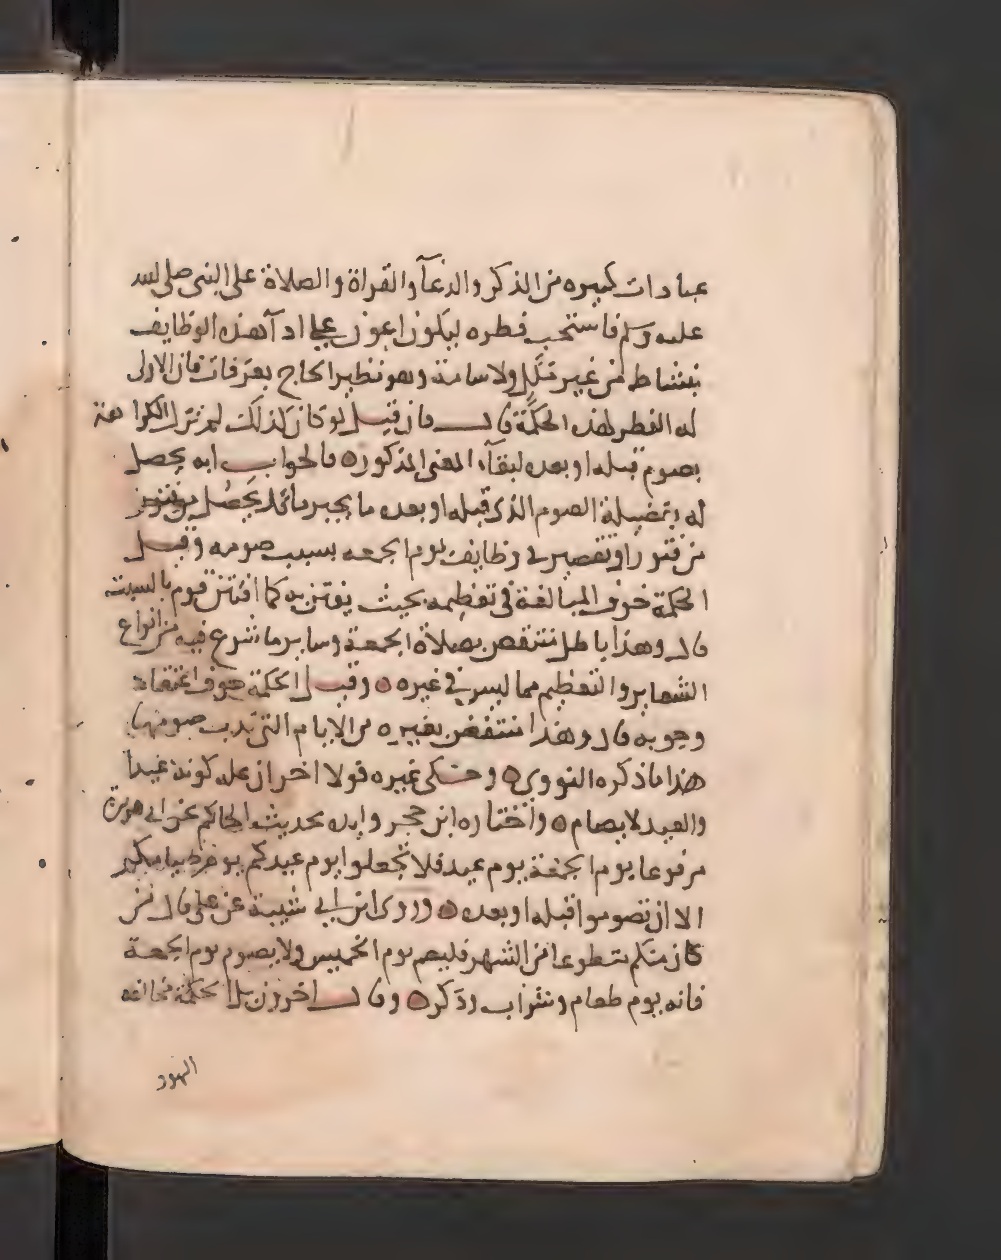 عبادات كبيره من الذكر والدعآ والقراة والصلاة على النبى صلى لله
عليه وسلم فاستحب فطره ليكون اعون على ادآ هذه الوظايف
بنشاط من غير تملل ولا سامة وهو نظير الحاج بعرفات فان الاولى
له الفطر لهذه الحكمة قال فان قيل لو كان كذلك لم تزل الكراهة
بصوم قبله او بعده لبقآء المعنى المذكوره فالجواب انه يحصل
له بفضيلة الصوم الذى قبله او بعده ما يجبر ما قد يحصل
من فتور او تقصير فى وظايف يوم الجمعه بسبب صومه وقيل
الحكمة خوف المبالغة فى تعظيمه بحيث يفتتن به كما افتتن قوم بالسبت
قال وهذا باطل منتقض بصلاة الجمعة وساير ما شرع فيه من انواع
الشعاير والتعظيم مما ليس فى غيره ٥ وقيل الحكمة خوف اعتقاد
وجوبه قال وهذا منتقض بغيره من الايام التى ندب صومها
هذا ما ذكره النووى ٥ وحكى غيره قولا اخر ان علله كونه عيدا
والعيد لا يصام ٥ واختاره ابن حجر وايده بحديث الحاكم عن ابى هريرة
مرفوعا يوم الجمعة يوم عيد فلا تجعلوا يوم عيدكم يوم صيامكم
الا ان تصوموا قبله او بعده ٥ وروى ابن ابى شيبة عن على قال من
كان منكم متطوعا من الشهر فليصم يوم الخميس ولا يصوم يوم الجمعة
فانه يوم طعام وشراب وذكر ٥ وقال اخرون بل الحكمة مخالفه
اليهود